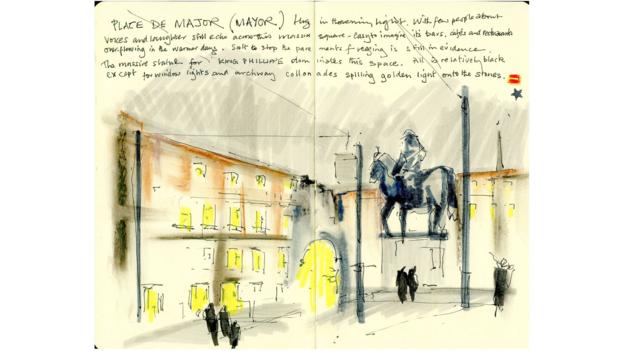 PLACE DE MAJOR (MAYOR) in the evening light. With few people about
voices and laughter still echo across this massive square - easy to imagine its bars, cafes and restaurants
overflowing in the warmer days. Salt to stop the pavements freezing is still in evidence.
The massive statue for KING PHILLIPE dominates this space. All is relatively black
except for window lights and archway collonades spilling golden light onto the stones.